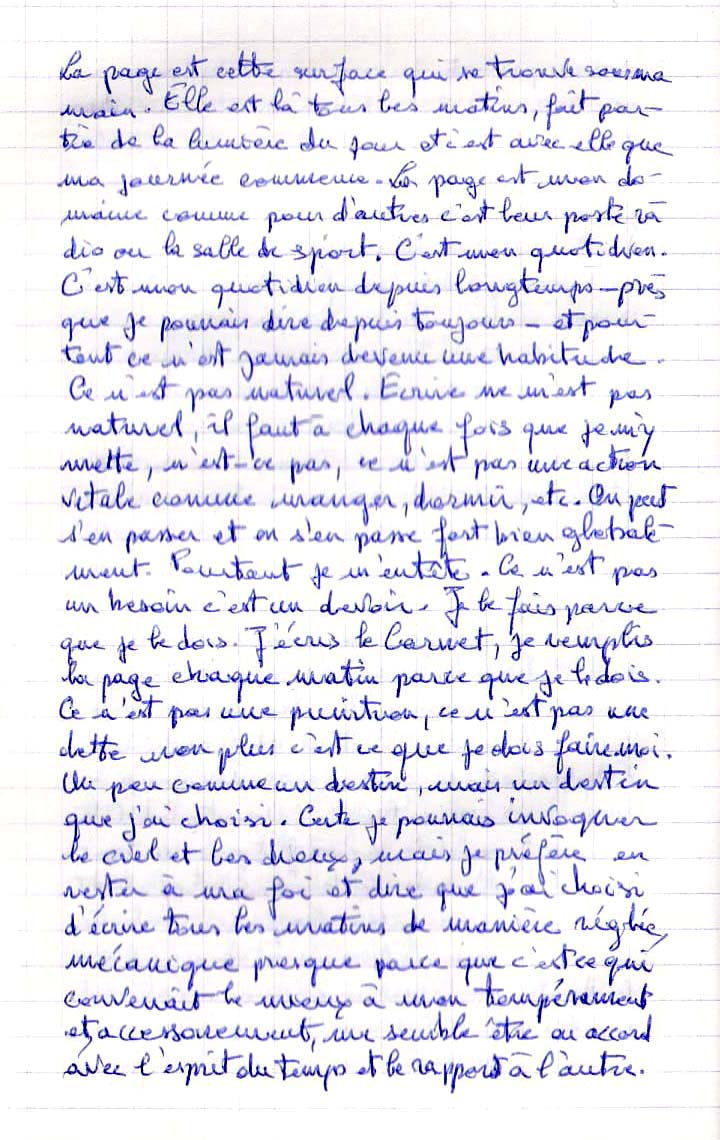 La page est cette surface qui se trouve sous ma
main. Elle est là tous les matins, fait par-
tie de la lumière du jour et c'est avec elle que
ma journée commence. La page est mon do-
maine comme pour d'autres c'est leur poste ra
dio ou la salle de sport. C'est mon quotidien.
C'est mon quotidien depuis longtemps – près
que je pourrais dire depuis toujours – et pour-
tant ce n'est jamais devenu une habitude.
Ce n'est pas naturel. Ecrire ne m'est pas
naturel, il faut à chaque fois que je m'y
mette, n'est-ce pas, ce n'est pas une action
vitale comme manger, dormir, etc. On peut
s'en passer et on s'en passe fort bien globale-
ment. Pourtant je m'entête. Ce n'est pas
un besoin c'est un devoir. Je le fais parce
que je le dois. J'écris le Carnet, je remplis
la page chaque matin parce que je le dois.
Ce n'est pas une punition, ce n'est pas une
dette non plus c'est ce que je dois faire moi.
Un peu comme un destin, mais un destin
que j'ai choisi. Certe je pourrais invoquer
le ciel et les dieux, mais je préfère en
rester à ma foi et dire que j'ai choisi
d'écrire tous les matins de manière réglée,
mécanique presque parce que c'est ce qui
convenait le mieux à mon tempérament
et, accessoirement, me semble être en accord
avec l'esprit du temps et le rapport à l'autre.